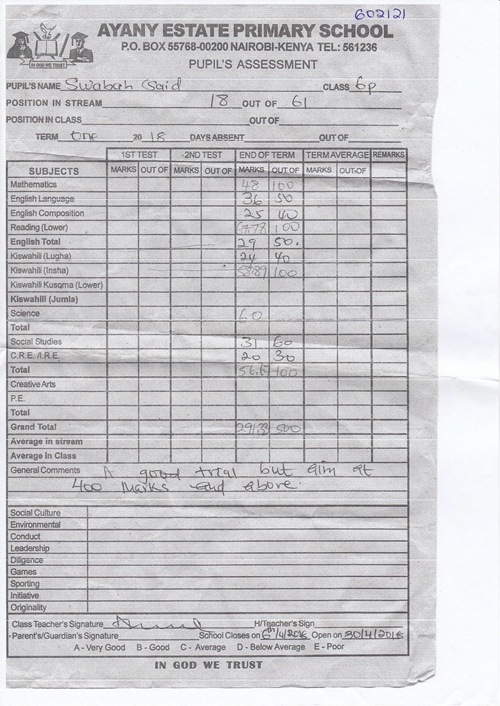 602121
AYANY ESTATE PRIMARY SCHOOL
P.O. BOX 55768-00200 NAIROBI-KENYA TEL: 561236
IN GOD WE TRUST
PUPIL'S ASSESSMENT
PUPIL'S NAME Swabah Said CLASS 6p
POSITION IN STREAM 18 OUT OF 61
POSITION IN CLASS OUT OF
TERM One 2018 DAYS ABSENT OUT OF
1ST TEST 2ND TEST END OF TERM TERM AVERAGE REMARKS
SUBJECTS MARKS OUT OF MARKS OUT OF MARKS OUT OF MARKS OUT OF
Mathematics 48 100
English Language 36 50
English Composition 25 40
Reading (Lower) 67.78 100
English Total 29 50.
Kiswahili (Lugha) 24 40
Kiswahili (Insha) 58.89 100
Kiswahili Kusoma (Lower)
Kiswahili (Jumla)
Science 60
Total
Social Studies 31 60
C.R.E. /I.R.E. 20 30
Total 56.67 100
Creative Arts
P.E.
Total
Grand Total 291.33 500
Average in stream
Average in Class
General Comments A good trial but aim at
400 marks and above.
Social Culture
Environmental
Conduct
Leadership
Diligence
Games
Sporting
Initiative
Originality
Class Teacher's Signature H/Teacher's Sign
Parent's/Guardian's Signature School Closes on 6th/4/2018 Open on 30/4/2018
A - Very Good B - Good C - Average D - Below Average E - Poor
IN GOD WE TRUST